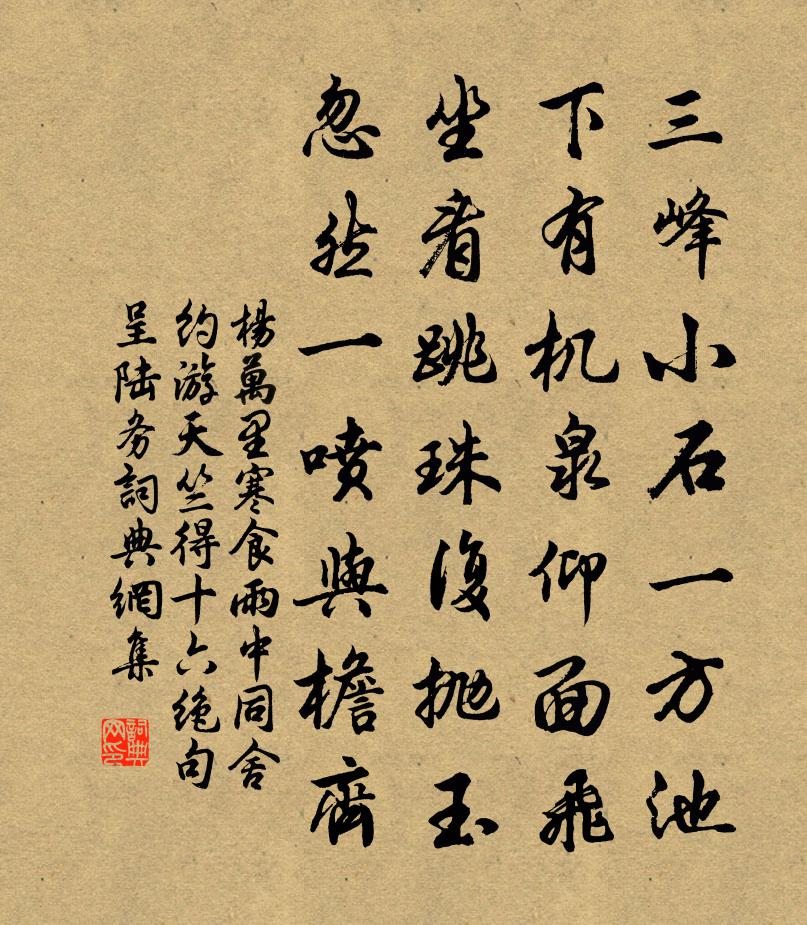 三峰小石一方池
下有机泉仰面飛
坐看跳珠復抛玉
忽然一噴與檐齊
楊萬里寒食雨中同舍
约游天竺得十六绝句
呈陆务詞典網集
詞典
网印